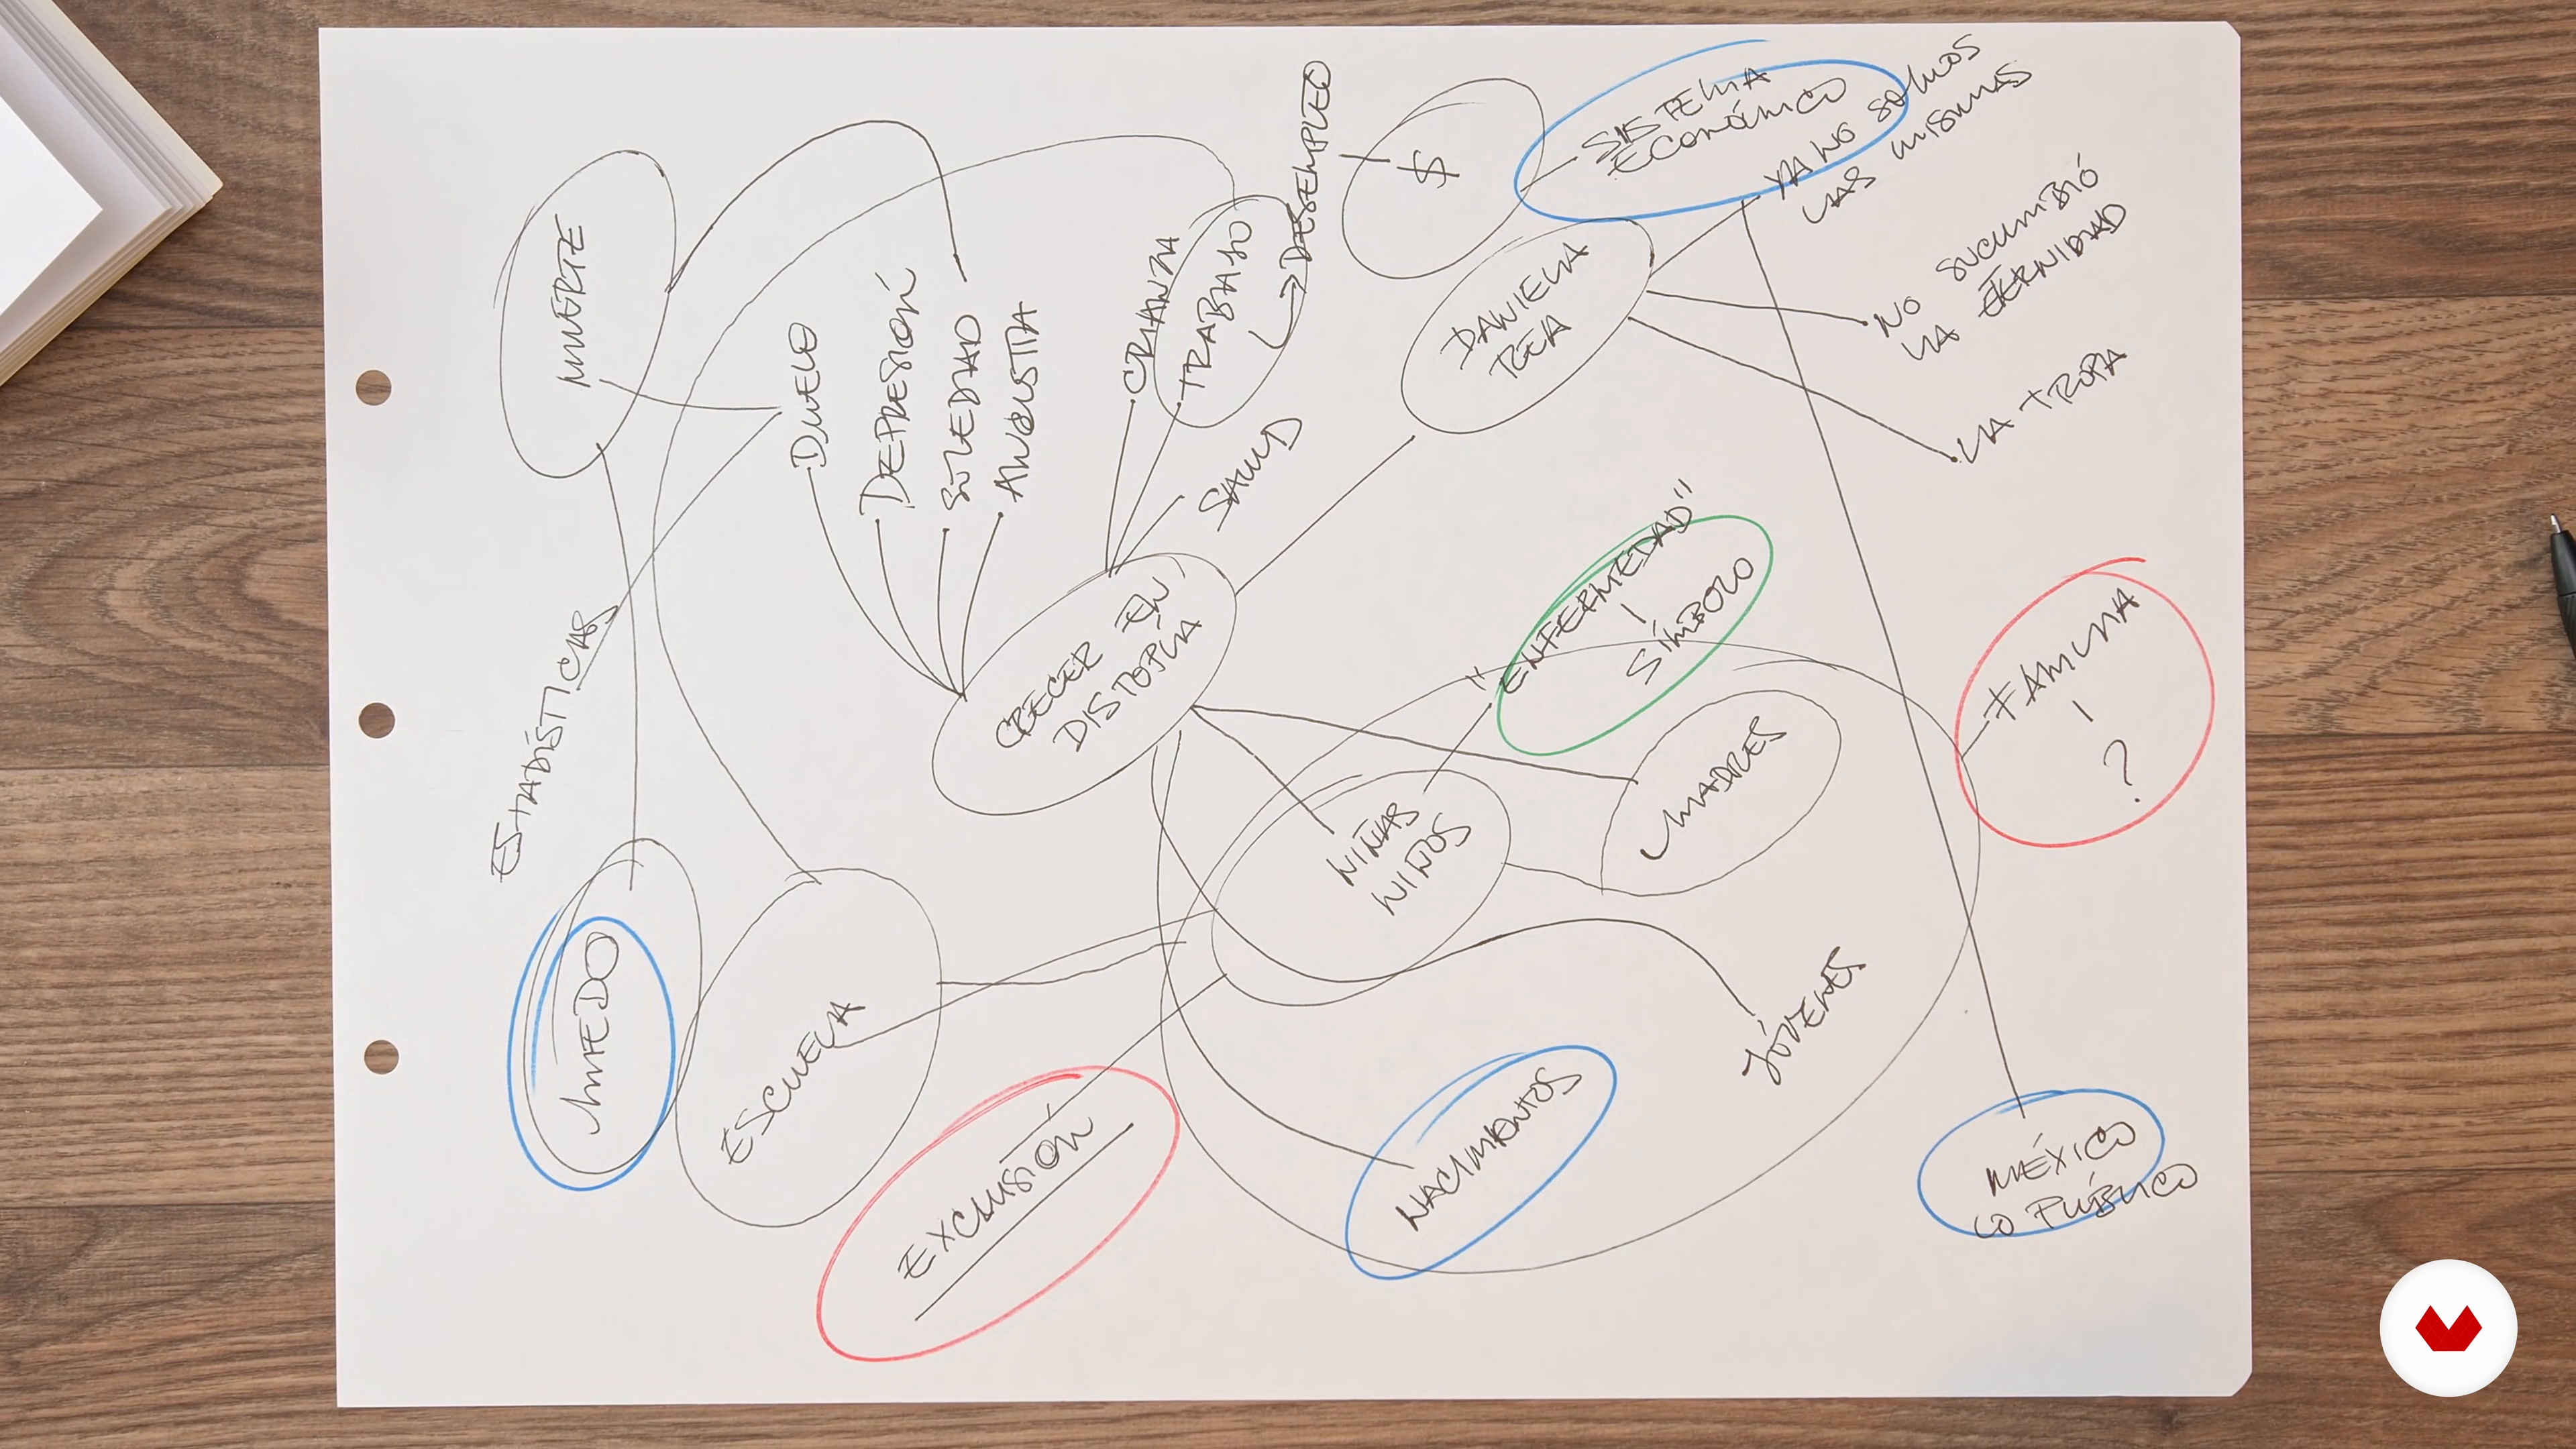 MUERTE
DUELO
DEPRESIÓN
SOLEDAD
ANGUSTIA
CRIANZA
TRABAJO
DESEMPLEO
SALUD
$
SISTEMA
ECONÓMICO
DANIELA
REA
YA NO SOMOS
LAS MISMAS
NO SUCUMBIÓ
LA ETERNIDAD
LA TROPA
ESTADÍSTICAS
CRECER EN
DISTOPÍA
"ENFERMEDAD"
SÍMBOLO
FAMILIA
?
MADRES
NIÑAS
NIÑOS
MIEDO
ESCUELA
JÓVENES
EXCLUSIÓN
NACIMIENTOS
MÉXICO
LO PÚBLICO